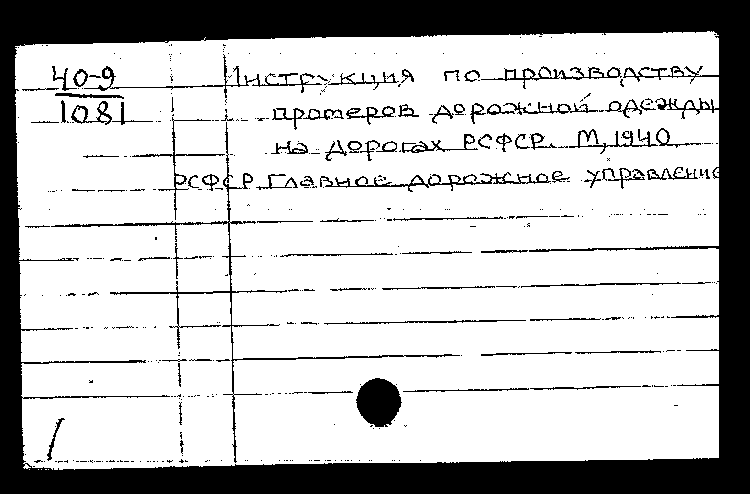 40-9
1081
Инструкция по производству
промеров дорожной одежды
на дорогах РСФСР. М, 1940.
РСФСР. Главное дорожное управление